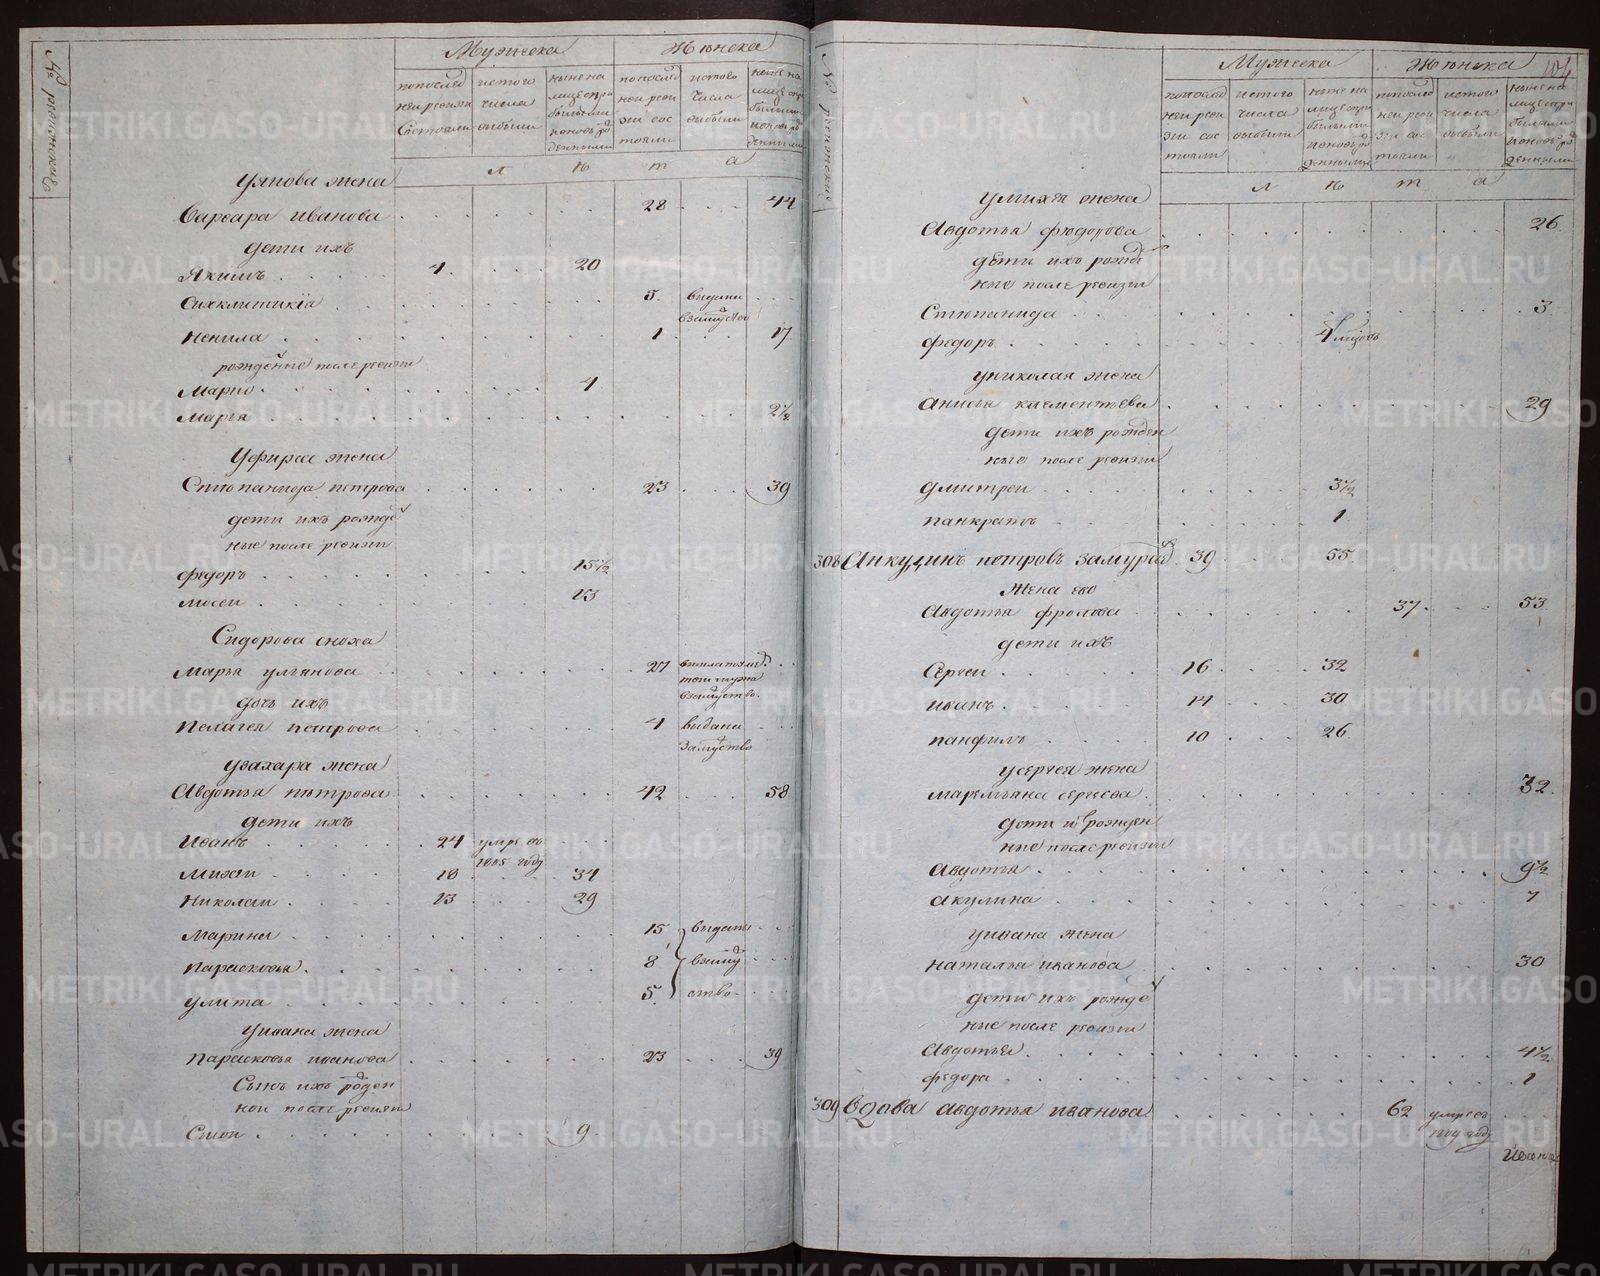 № ревижские
Мужеска Женска
по послед ней ревизи состояли
ис того числа выбыли
ныне на лицо с при былыми и новорож денными
по послед ней реви зи сос тояли
ис тово числа выбыли
ныне на лицо с при былыми и новорож денными
л ѣ т а
Уяпова жена
Варвара иванова 28 44
дети ихъ
Якимъ 4 20
Синклитикіа 5 выдана взамужство
Ненила 1 17
рожденые после ревизи
Марко 4
Марья 2½
жена
Степанида петрова 23 39
дети ихъ рожде
ные после ревизи
федоръ 15½
мосеи 13
Сидорова сноха
Марья ульянова 27
дочь ихъ
Пелагея петрова 4 выдана замужство
Узахара жена
Авдотья петрова 42 58
дети ихъ
Иванъ 24 умре въ 1805 году
Михаи 18 34
Николаи 13 29
Марина 15 выданы
Парасковья 8 взамуж
улита 5 ство
Уивана жена
Парасковья иванова 23 39
Сынъ ихъ рожден
нои после ревизи
9
№ ревижские
104
Мужеска Женска
по послед ней реви зи сос тояли
ис того числа выбыли
ныне на лицо с при былыми и новорож денными
по послед ней реви зи сос тояли
ис того числа выбыли
ныне на лицо с при былыми и новорож денными
л ѣ т а
Умихея жена
Авдотья федорова 26
дети ихъ рожде
ные после ревизи
Степанида 3
федоръ
Униколая жена
Анисья клементьева 29
дети ихъ рожден
ные после ревизи
дмитреи 3½
панкратъ 1
308 Анкудинъ петровъ замураев 39 55
Жена ево
Авдотья фролова 37 53
дети ихъ
Сергеи 16 32
иванъ 14 30
панфилъ 10 26
Усергея жена
маремьяна 32
дети их рожден
ные после ревизи
Авдотья 9½
акулина 7
Уивана жена
наталья иванова 30
дети ихъ рожде
ные после ревизи
Авдотья 4½
федора 1
309 вдова авдотья иванова 62 умре въ 1804 году
Ивана
METRIKI.GASO-URAL.RU